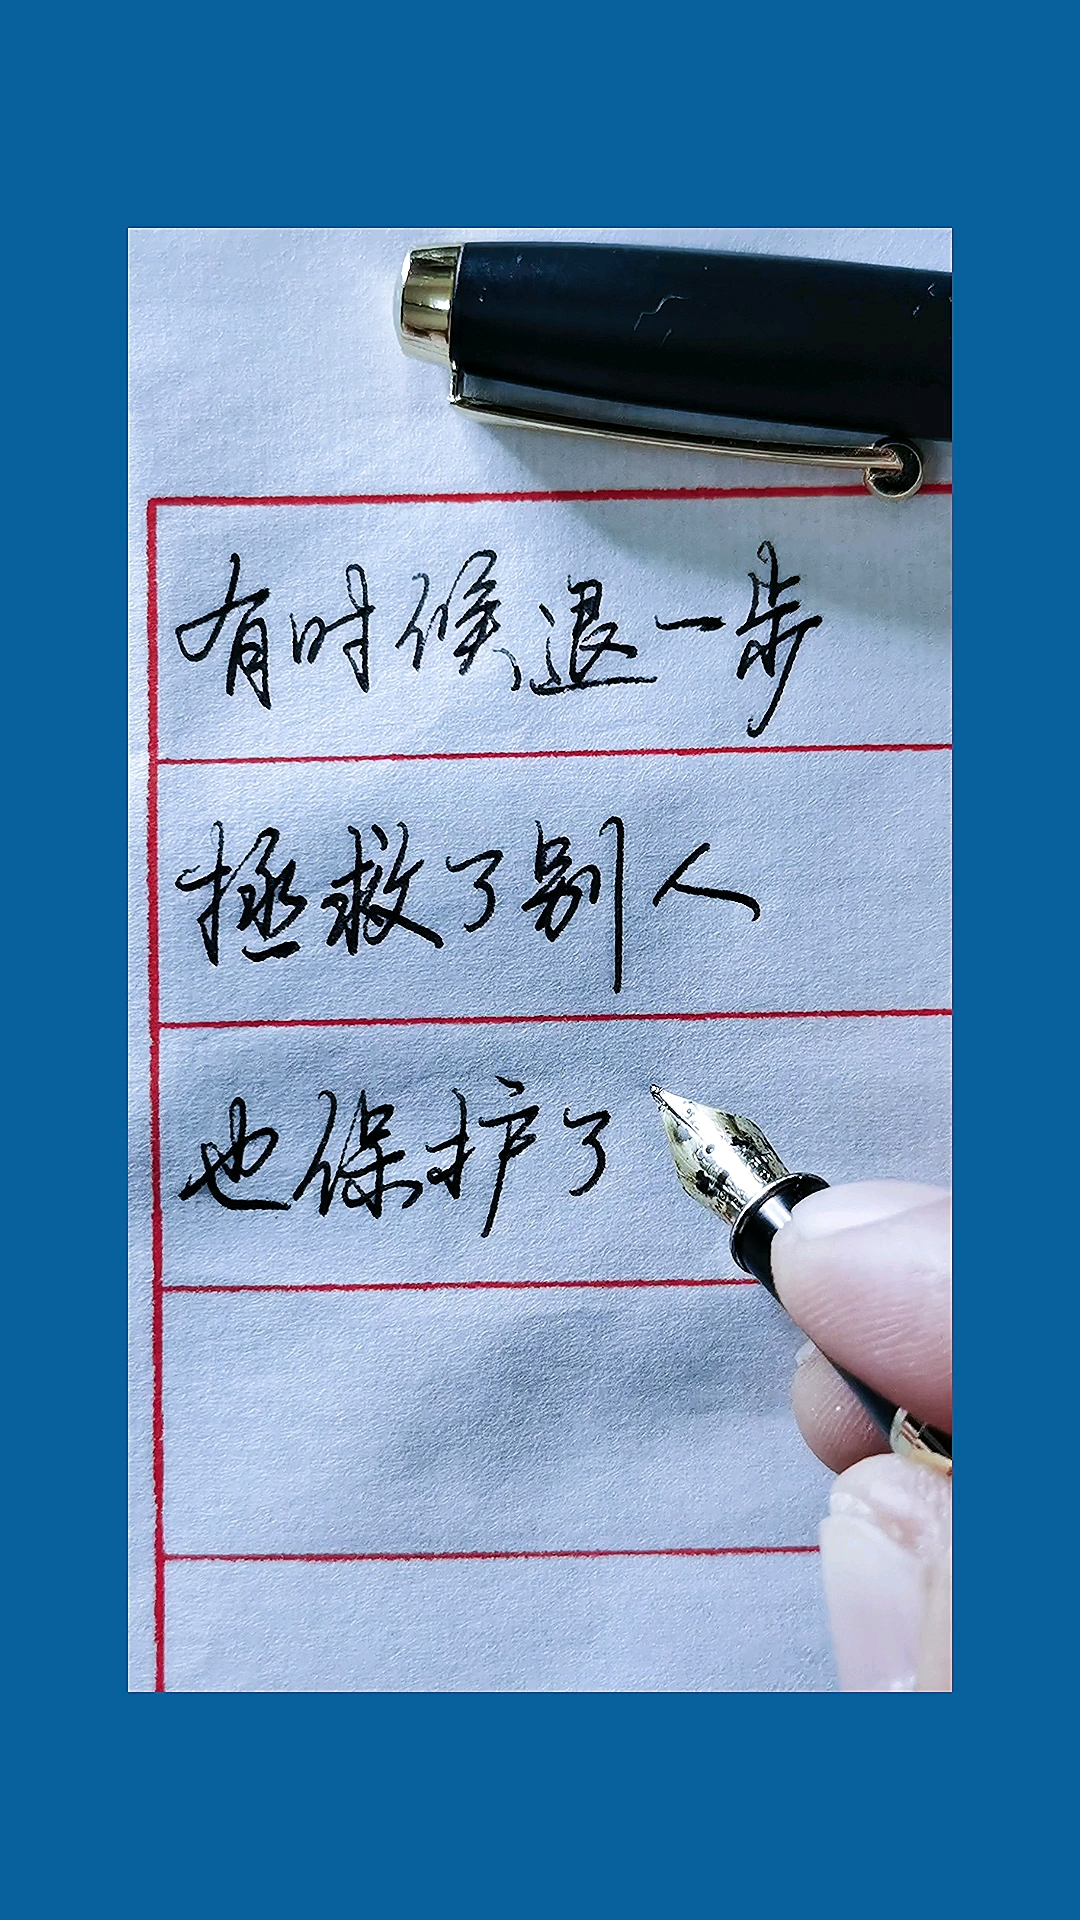 有时候退一步
拯救了别人
也保护了